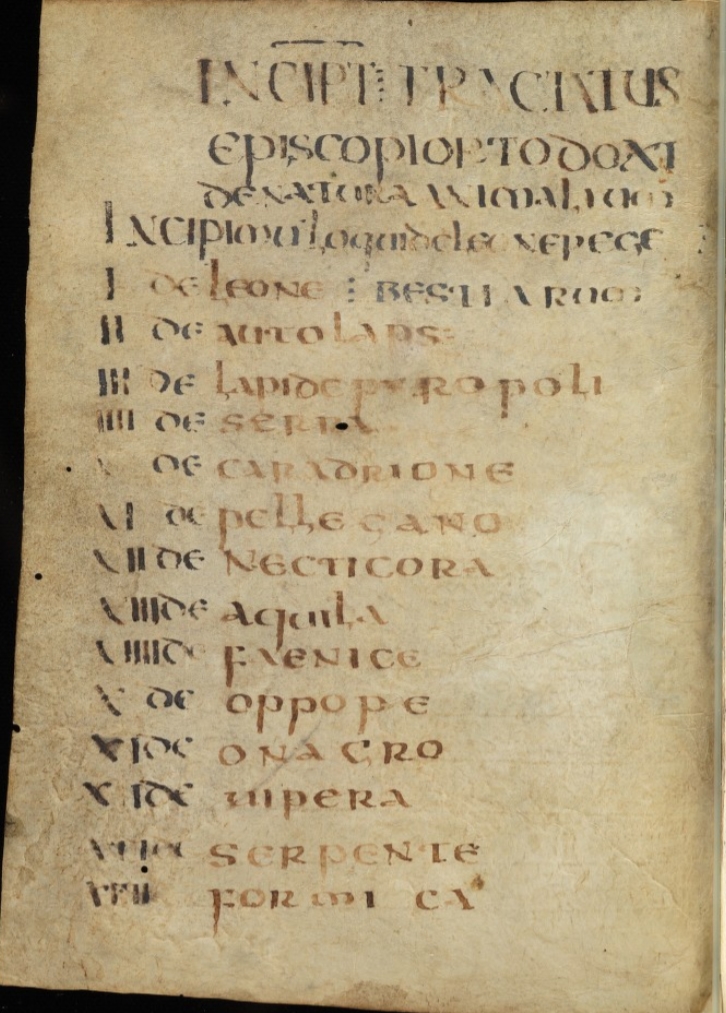 INCIPIT TRACTATUS
EPISCOPI ORTODOXI
DE NATURA ANIMALIUM
INCIPIMUS LOQUI DE LEONE REGE
I DE LEONE : BESTIARUM
II DE AUTOLAPS
III DE LAPIDE PYROPOLI
IIII DE SERRA
DE CARADRIONE
VI DE PELLEGANO
VII DE NECTICORA
VIII DE AQUILA
VIIII DE FAENICE
X DE OPPOPE
XI DE ONAGRO
XII DE UIPERA
SERPENTE
FORMICA